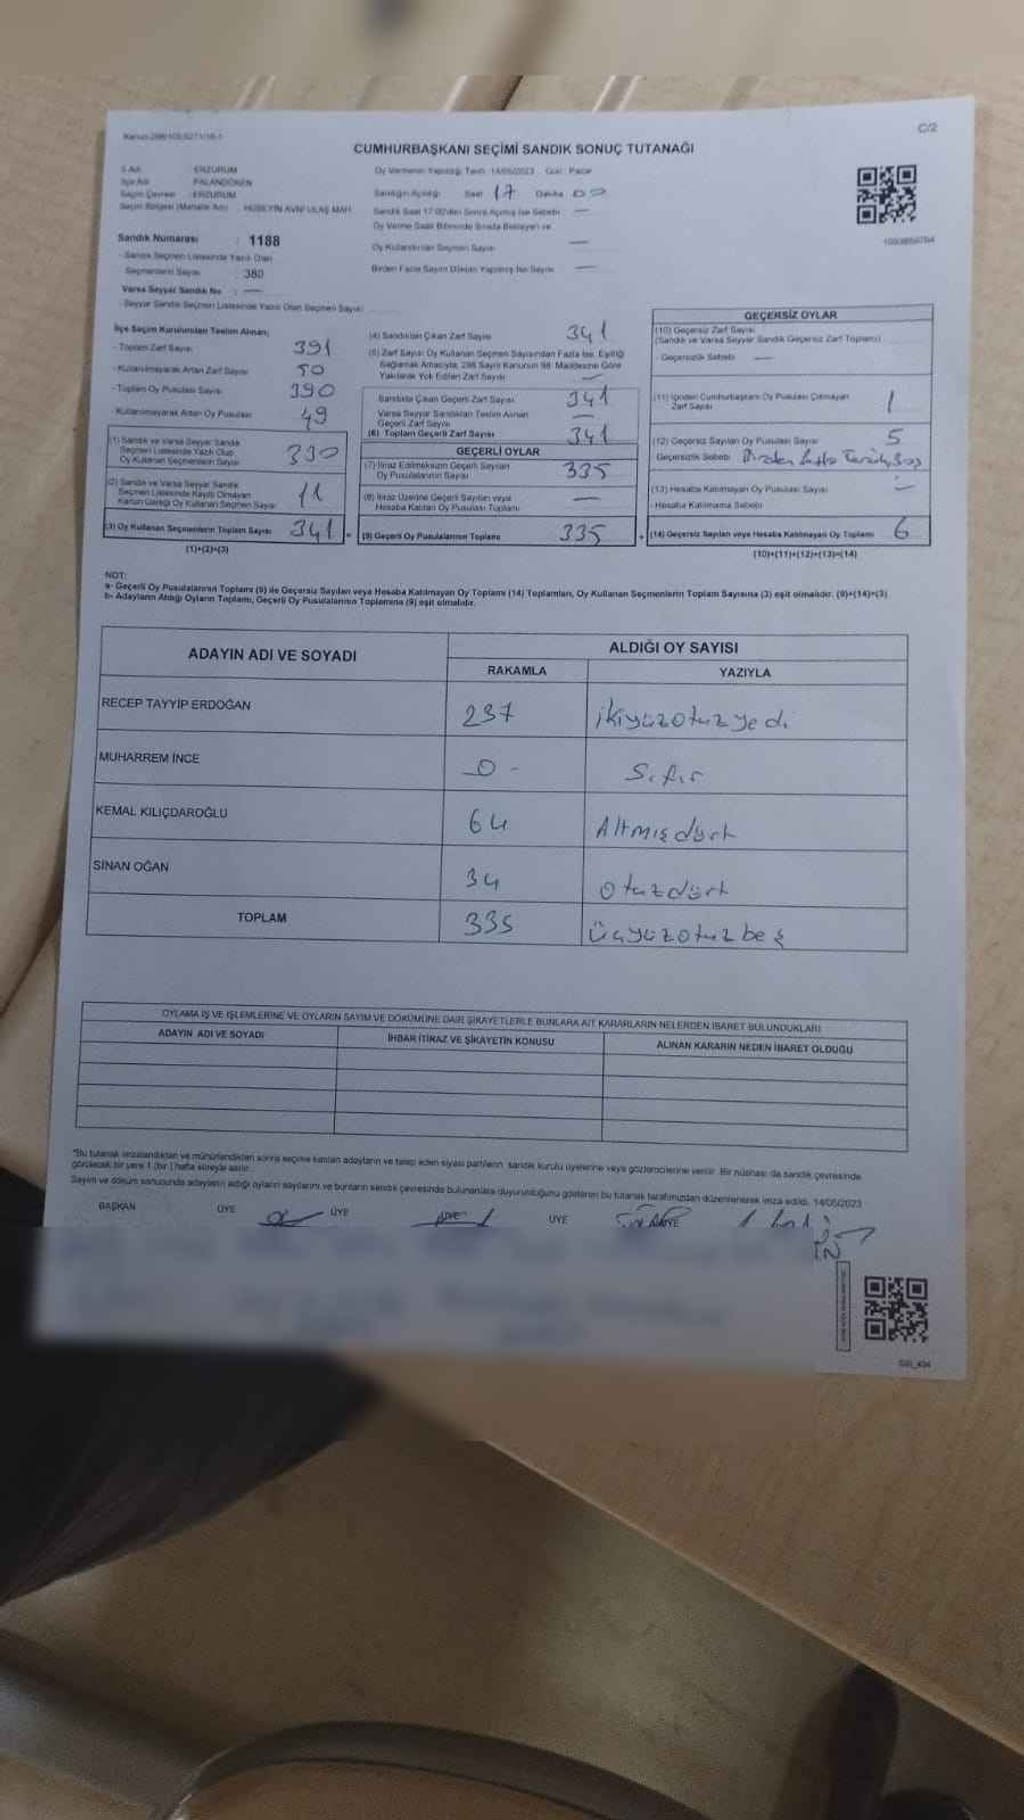 C/2
CUMHURBAŞKANI SEÇİMİ SANDIK SONUÇ TUTANAĞI
İl Adı : ERZURUM
İlçe Adı : PALANDÖKEN
Seçim Çevresi : ERZURUM
Seçim Bölgesi (Mahalle Adı) : HÜSEYİN AVNİ ULAŞ MAH.
Sandık Numarası : 1188
Sandık Seçmen Listesinde Yazılı Olan
Seçmenlerin Sayısı : 380
Varsa Seyyar Sandık No : —
Seyyar Sandık Seçmen Listesinde Yazılı Olan Seçmen Sayısı
Oy Vermenin Yapıldığı Tarih: 14/05/2023 Gün: Pazar
Sandığın Açıldığı Saat 17 Dakika 00
Sandık Saat 17.00'den Sonra Açılmış İse Sebebi —
Oy Verme Saati Bitiminde Sırada Bekleyen ve
Oy Kullandırılan Seçmen Sayısı —
Birden Fazla Sayım Döküm Yapılmış İse Sayısı —
İlçe Seçim Kurulundan Teslim Alınan;
- Toplam Zarf Sayısı 391
- Kullanılmayarak Artan Zarf Sayısı 50
- Toplam Oy Pusulası Sayısı 390
- Kullanılmayarak Artan Oy Pusulası 49
(1) Sandık ve Varsa Seyyar Sandık
Seçmen Listesinde Yazılı Olup
Oy Kullanan Seçmenlerin Sayısı 330
(2) Sandık ve Varsa Seyyar Sandık
Seçmen Listesinde Kayıtlı Olmayan
Kanun Gereği Oy Kullanan Seçmen Sayısı 11
(3) Oy Kullanan Seçmenlerin Toplam Sayısı 341
(1)+(2)=(3)
(4) Sandıktan Çıkan Zarf Sayısı 341
(5) Zarf Sayısı Oy Kullanan Seçmen Sayısından Fazla İse, Eşitliği
Sağlamak Amacıyla, 298 Sayılı Kanunun 98. Maddesine Göre
Yakılarak Yok Edilen Zarf Sayısı —
Sandıkta Çıkan Geçerli Zarf Sayısı 341
Varsa Seyyar Sandıktan Teslim Alınan
Geçerli Zarf Sayısı —
(6) Toplam Geçerli Zarf Sayısı 341
GEÇERLİ OYLAR
(7) İtiraz Edilmeksizin Geçerli Sayılan
Oy Pusulalarının Sayısı 335
(8) İtiraz Üzerine Geçerli Sayılan veya
Hesaba Katılan Oy Pusulası Toplamı —
(9) Geçerli Oy Pusulalarının Toplamı 335
GEÇERSİZ OYLAR
(10) Geçersiz Zarf Sayısı
(Sandık ve Varsa Seyyar Sandık Geçersiz Zarf Toplamı)
- Geçersizlik Sebebi —
(11) İçinden Cumhurbaşkanı Oy Pusulası Çıkmayan
Zarf Sayısı 1
(12) Geçersiz Sayılan Oy Pusulası Sayısı 5
Geçersizlik Sebebi Birden fazla Tercih
(13) Hesaba Katılmayan Oy Pusulası Sayısı —
- Hesaba Katılmama Sebebi
(14) Geçersiz Sayılan veya Hesaba Katılmayan Oy Toplamı 6
(10)+(11)+(12)+(13)=(14)
NOT:
a- Geçerli Oy Pusulalarının Toplamı (9) ile Geçersiz Sayılan veya Hesaba Katılmayan Oy Toplamı (14) Toplamları, Oy Kullanan Seçmenlerin Toplam Sayısına (3) eşit olmalıdır. (9)+(14)=(3)
b- Adayların Aldığı Oyların Toplamı, Geçerli Oy Pusulalarının Toplamına (9) eşit olmalıdır.
ADAYIN ADI VE SOYADI
ALDIĞI OY SAYISI
RAKAMLA YAZIYLA
RECEP TAYYİP ERDOĞAN 237 ikiyüzotuzyedi
MUHARREM İNCE -0- Sıfır
KEMAL KILIÇDAROĞLU 64 Altmışdört
SİNAN OĞAN 34 otuzdört
TOPLAM 335 üçyüzotuzbeş
OYLAMA İŞ VE İŞLEMLERİNE VE OYLARIN SAYIM VE DÖKÜMÜNE DAİR ŞİKAYETLERLE BUNLARA AİT KARARLARIN NELERDEN İBARET BULUNDUKLARI
ADAYIN ADI VE SOYADI İHBAR İTİRAZ VE ŞİKAYETİN KONUSU ALINAN KARARIN NEDEN İBARET OLDUĞU
*Bu tutanak imzalandıktan ve mühürlendikten sonra seçime katılan adayların ve talep eden siyasi partilerin, sandık kurulu üyelerine veya gözlemcilerine verilir. Bir nüshası da sandık çevresinde
görülecek bir yere 1 (bir) hafta süreyle asılır.
Sayım ve döküm sonucunda adayların aldığı oyların sayılarını ve bunların sandık çevresinde bulunanlara duyurulduğunu gösteren bu tutanak tarafımızdan düzenlenerek imza edildi. 14/05/2023
BAŞKAN ÜYE ÜYE ÜYE ÜYE ÜYE